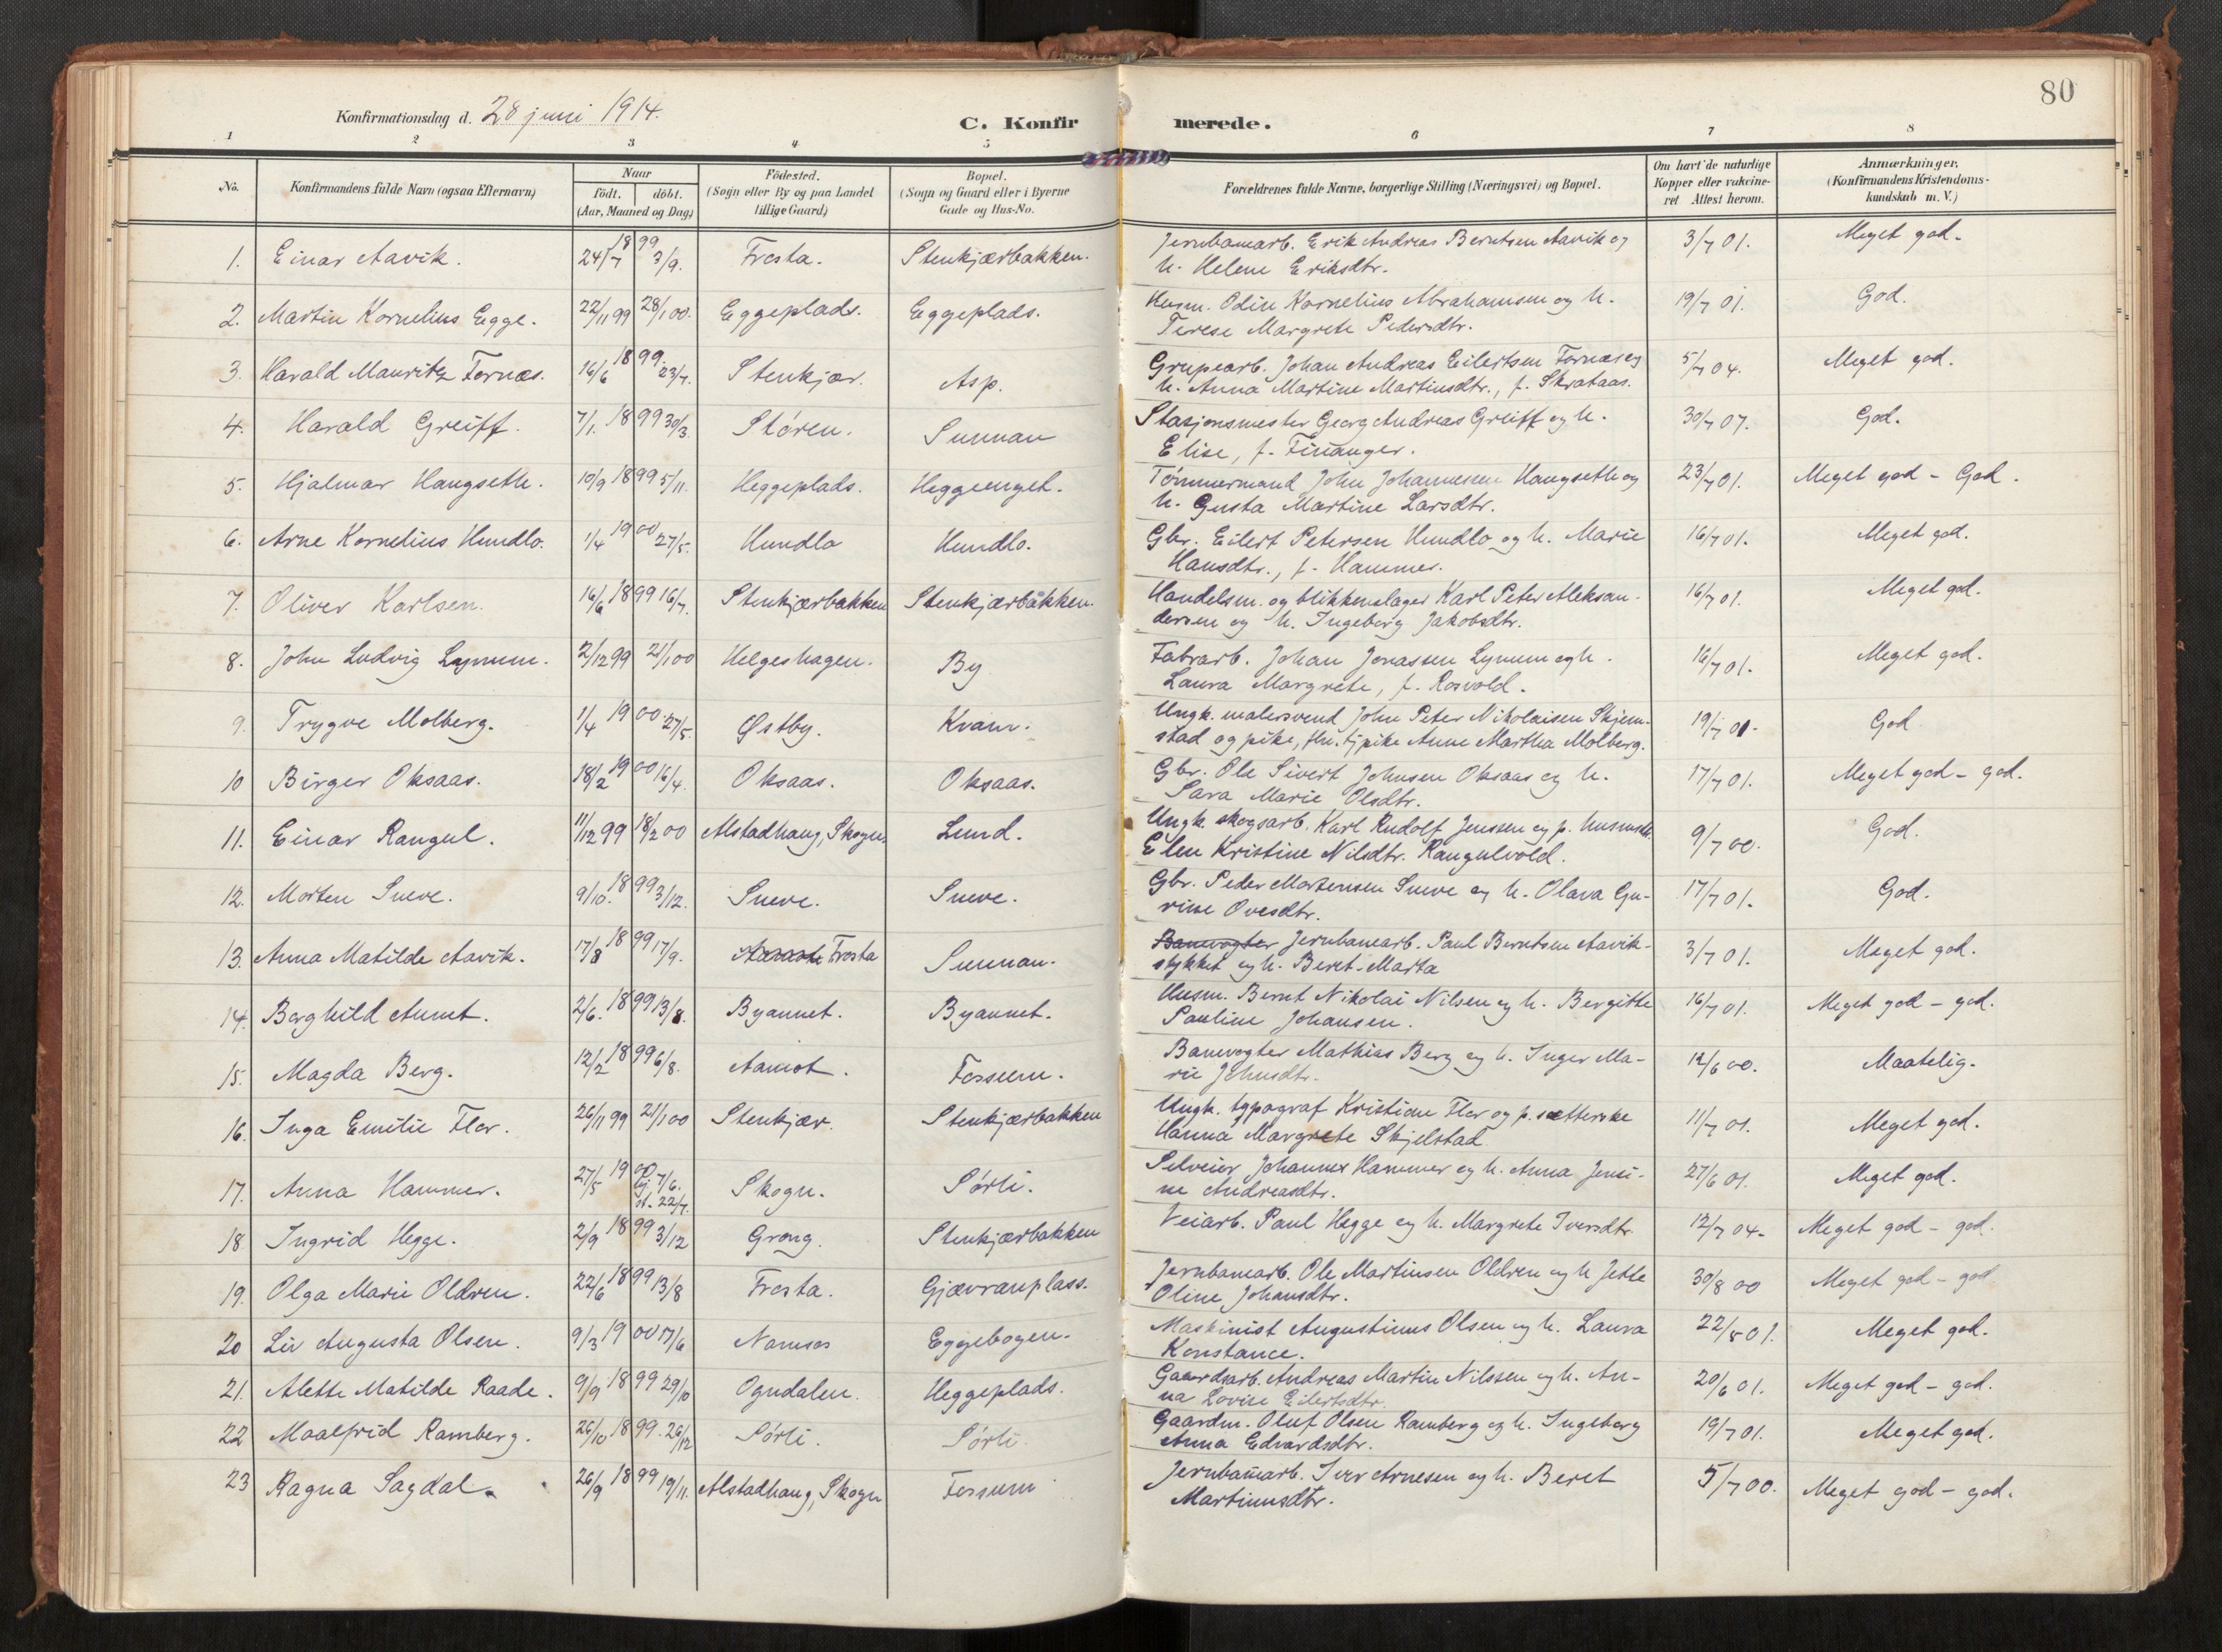 80
Konfirmationsdag d. 28 juni 1914.
C. Konfirmerede.
1 2 3 4 5 6 7 8
No.
Konfirmandens fulde Navn (ogsaa Efternavn)
Naar
födt. döbt.
(Aar, Maaned og Dag)
Födested.
(Sogn eller By og paa Landet
tillige Gaard)
Bopæl.
(Sogn og Gaard eller i Byerne
Gade og Hus-No.
Forældrenes fulde Navne, borgerlige Stilling (Næringsvei) og Bopæl.
Om havt de naturlige
Kopper eller vakcine-
ret Attest herom.
Anmærkninger.
(Konfirmandens Kristendoms-
kundskab m. V.)
1. Einar Aavik. 24/7 1899 3/9. Frosta. Stenkjærbakken. Jernbanearb. Erik Andreas Berntsen Aavik og 3/7 01. Meget god.
h. Helene Eriksdtr.
2. Martin Kornelius Egge. 22/11 99 28/1 00. Eggeplads. Eggeplads. Husm. Odin Kornelius Abrahamsen og h. 19/7 01. God.
Terese Margrete Pedersdtr.
3. Harald Mauritz Fornæs. 16/6 1899 23/7. Stenkjær. Asp. Grupearb. Johan Andreas Eilertsen Fornæs og 5/7 04. Meget god.
h. Anna Martine Martinsdtr., f. Skrataas.
4. Harald Greiff. 7/1. 1899 30/3. Støren. Sunnan Stasjonsmester Georg Andreas Greiff og h. 30/7 07. God.
Elise, f. Finanger.
5. Hjalmar Haugseth. 10/9 1899 5/11. Heggeplads. Heggeenget. Tømmermand John Johannesen Haugseth og 23/7 01. Meget god - God.
h. Gusta Martine Larsdtr.
6. Arne Kornelius Hundlo. 1/4 1900 27/5. Hundlo Hundlo. Gbr. Eilert Petersen Hundlo og h. Marie 16/7 01. Meget god.
Hansdtr., f. Hammer.
7. Oliver Karlsen. 16/6 1899 16/7. Stenkjærbakken Stenkjærbakken. Handelsm. og blikkenslager Karl Peter Aleksan- 16/7 01. Meget god.
dersen og h. Ingeborg Jakobsdtr.
8. John Ludvig Lynum. 2/12 99 21/1 00 Helgeshagen. By Fabrarb. Johan Jonassen Lynum og h. 16/7 01. Meget god.
Laura Margrete, f. Rosvold.
9. Trygve Molberg. 1/4 1900 27/5. Østby. Kvam. Ungk. malersvend John Peter Nikolaisen Skjem- 19/7 01. God
stad og pike, tj.pike Anne Martha Molberg.
10 Birger Oksaas. 18/2 1900 16/4. Oksaas. Oksaas. Gbr. Ole Sivert Johnsen Oksaas og h. 17/7 01. Meget god - god.
Sara Marie Olsdtr.
11. Einar Rangul. 11/12 99 18/2 00 Alstadhaug, Skogn. Lund. Ungk. skogsarb. Karl Rudolf Jenssen og p. 9/7 00. God.
Elen Kristine Nilsdtr. Rangulvold.
12. Morten Sneve. 9/10. 1899 3/12. Sneve. Sneve. Gbr. Peder Mortensen Sneve og h. Olava Gu- 17/7 01. God.
rine Ovesdtr.
13. Anna Matilde Aavik. 17/8 1899 17/9. Frosta Sunnan. Banevogter Jernbanearb. Paul Berntsen Aavik- 3/7 01. Meget god.
stykket og h. Beret-Marta
14. Borghild Aunet. 2/6. 1899 13/8. Byaunet. Byaunet. Husm. Bernt Nikolai Nilsen og h. Bergitte 16/7 01. Meget god - god.
Pauline Johansen.
15. Magda Berg. 12/2 1899 6/8. Aamot. Fossum. Banevogter Mathias Berg og h. Inger Ma- 12/6 00. Maatelig.
rie Johnsdtr.
16. Inga Emilie Flor. 26/11 99 21/1 00 Stenkjær. Stenkjærbakken Ungk. typograf Kristian Flor og p. sætterske 11/7 01. Meget god.
Hanna Margrete Skjelstad
17. Anna Hammer. 27/5 1900 hj. 7/6. st. 22/7. Skogn. Sørli. Selveier Johannes Hammer og h. Anna Jensi- 27/6 01. Meget god.
ne Andreasdtr.
18 Ingrid Hegge. 2/9 1899 3/12 Grong. Stenkjærbakken Veiarb. Paul Hegge og h. Margrete Iversdtr. 12/7 04. Meget god - god.
19. Olga Marie Oldren. 22/6 1899 13/8 Frosta. Gjævranplass. Jernbanearb. Ole Martinsen Oldren og h Jette 30/8 00 Meget god - god
Oline Johansdtr.
20 Liv Augusta Olsen. 9/3 1900 17/6 Namsos Eggebogen. Maskinist Augustinus Olsen og h. Laura 22/8 01. Meget god.
Konstance.
21. Alette Matilde Raade. 9/9 1899 29/10 Ogndalen. Heggeplads. Gaardsarb. Andreas Martin Nilssen og h. An- 20/6 01. Meget god - god.
na Lovise Eilertsdtr.
22 Maalfrid Ramberg. 26/10 1899. 26/12 Sørli. Sørli. Gaardm. Oluf Olsen Ramberg og h. Ingeborg 19/7 01. Meget god.
Anna Edvardsdtr.
23 Ragna Sagdal. 26/9 1899 19/11. Alstadhaug, Skogn Fossum Jernbanearb. Iver Arnesen og h. Beret 5/7 00. Meget god - god.
Martinusdtr.